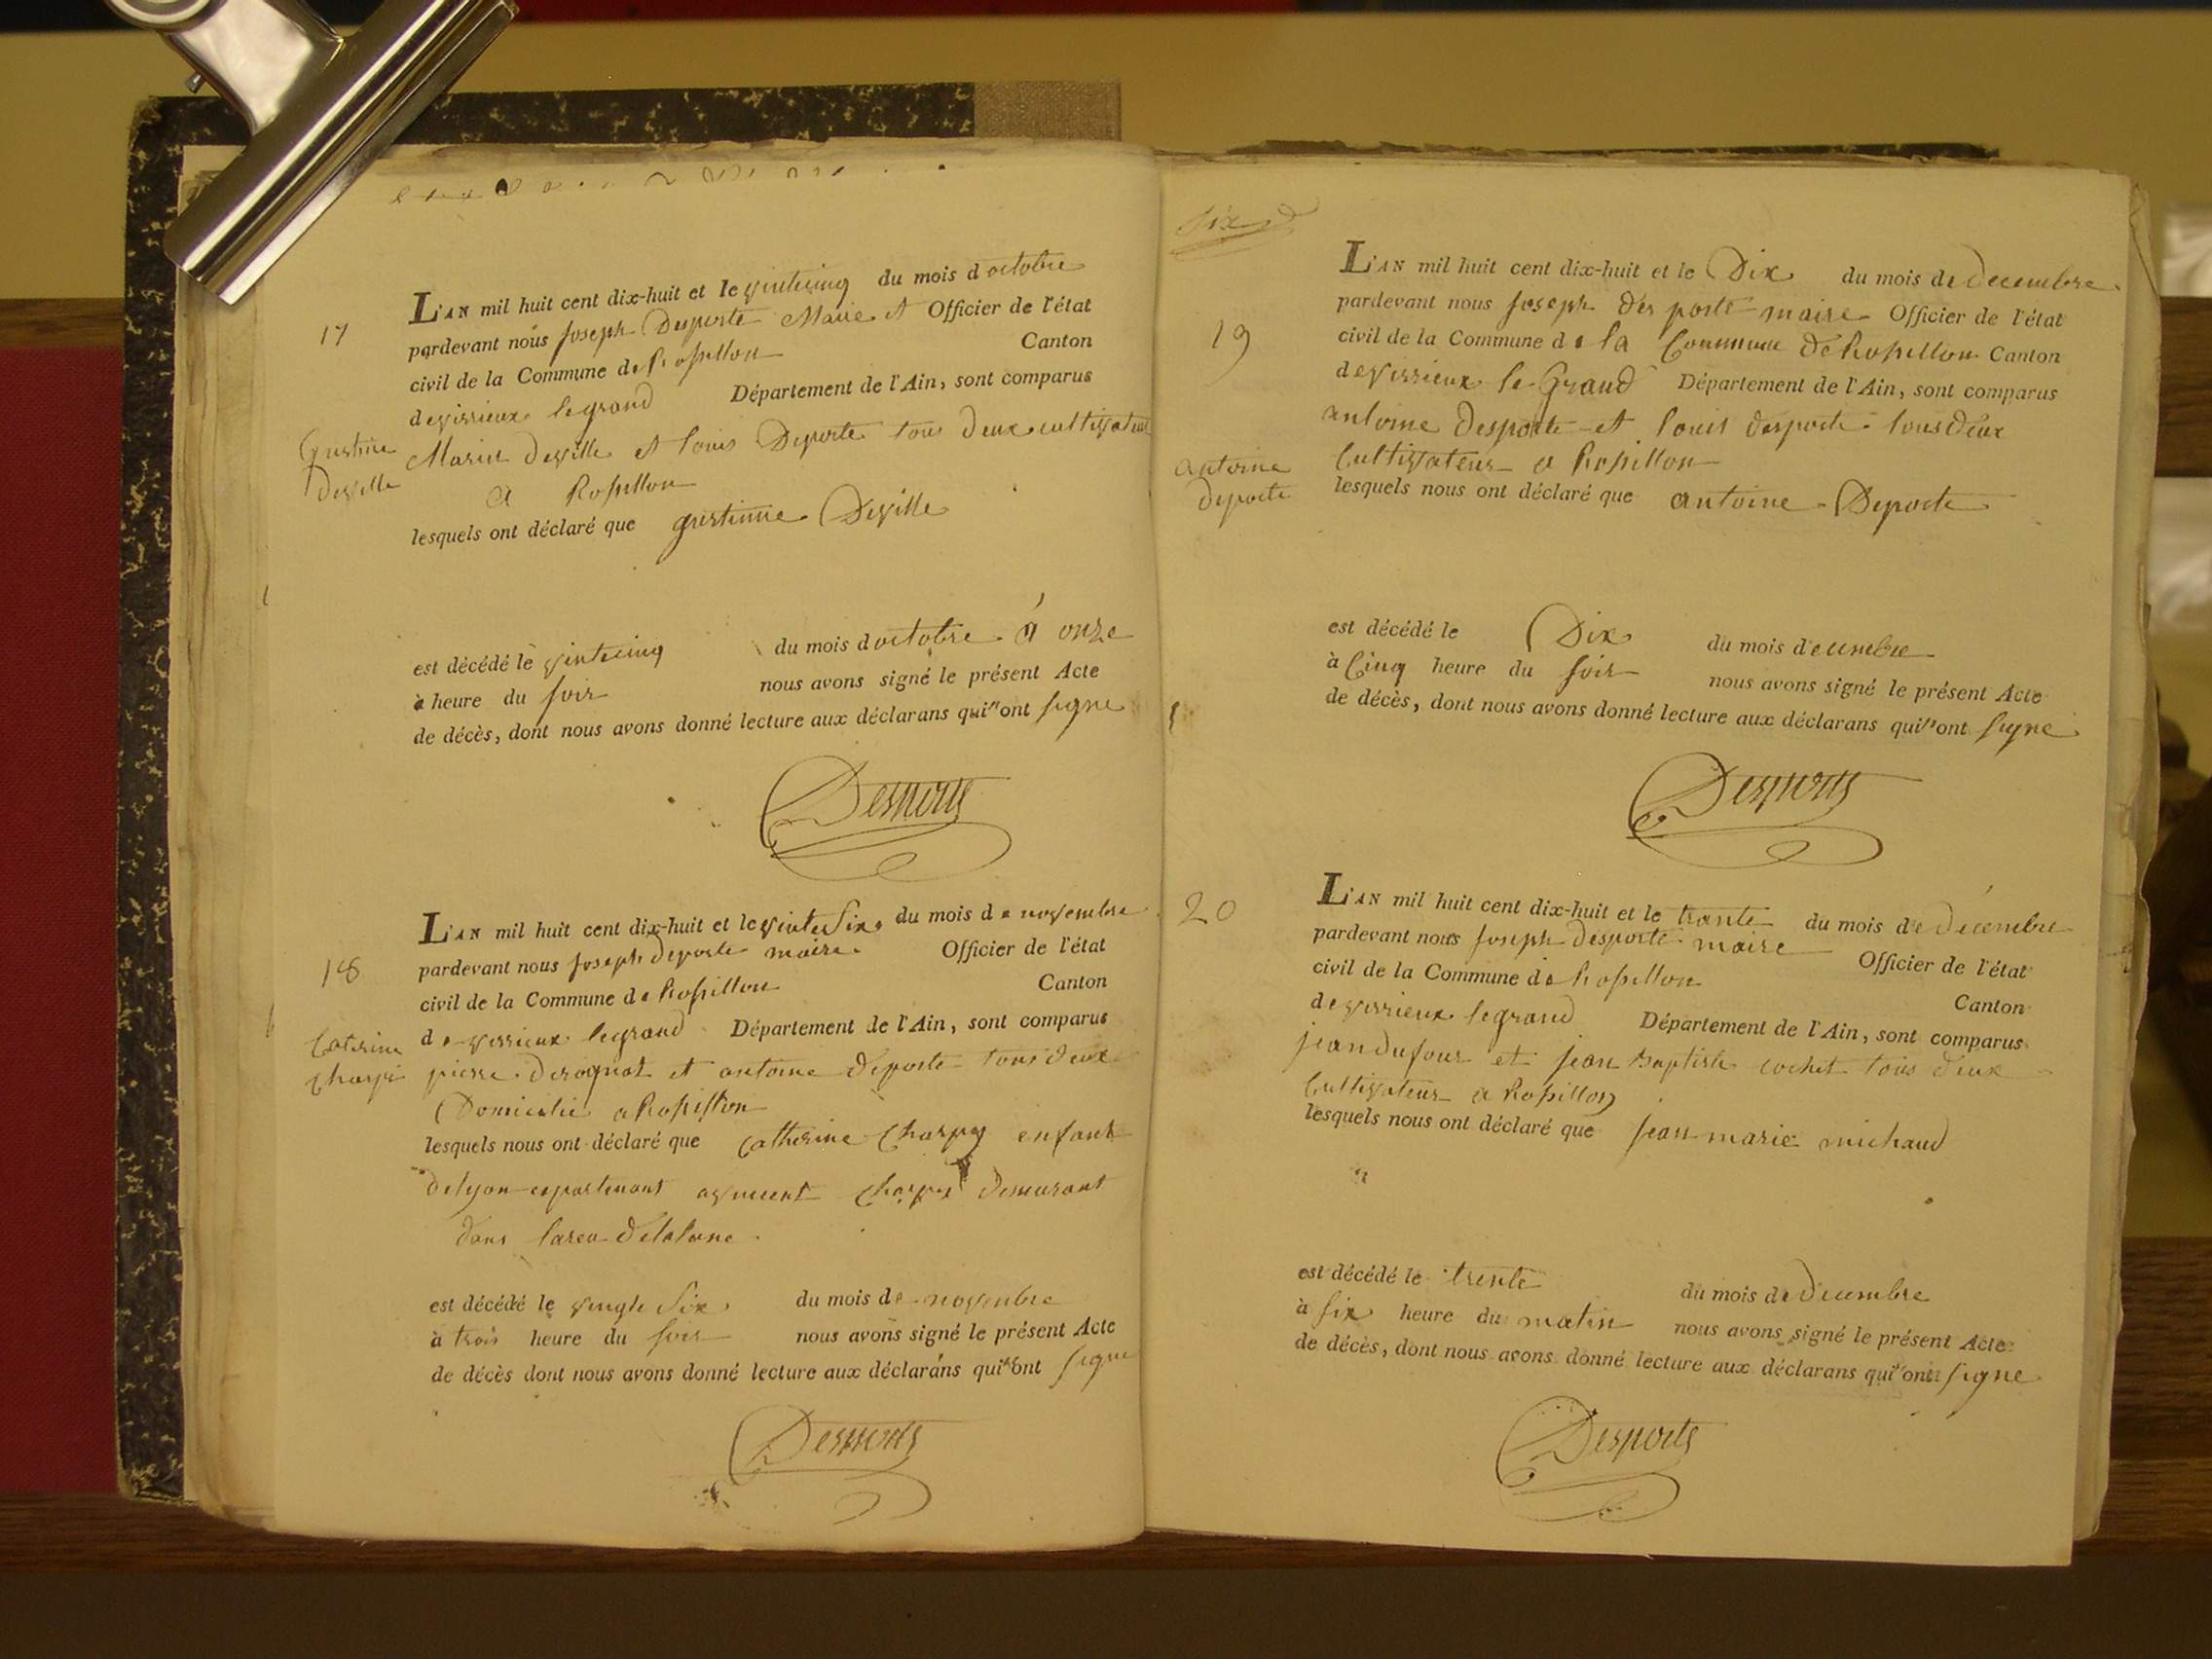 17
L'AN mil huit cent dix-huit et le vinticinq du mois d octobre
pardevant nous joseph Desporte Maire et Officier de l'état
civil de la Commune de Rossillon Canton
de virrieux le grand Département de l'Ain, sont comparus
Marin Deville et louis Deporte tous deux cultivateur
a Rossillon
Deville
lesquels ont déclaré que Deville
est décédé le vinticinq du mois d octobre a onze
à heure du soir nous avons signé le présent Acte
de décès, dont nous avons donné lecture aux déclarans qui ont signe
Desports
18
L'AN mil huit cent dix-huit et le vinte six du mois de novembre
pardevant nous joseph deporte maire Officier de l'état
civil de la Commune de Rossillon Canton
de virrieux le grand Département de l'Ain, sont comparus
Caterine
Charpi
pierre derognat et antoine deporte tous deux
Domicilié a Rossillon
lesquels nous ont déclaré que Catherine Charpy enfant
de lyon Charpy demeurant
dans
est décédé le vingte six du mois de novembre
à trois heure du soir nous avons signé le présent Acte
de décès dont nous avons donné lecture aux déclarans qui ont signe
Desports
six
19
L'AN mil huit cent dix-huit et le Dix du mois de decembre
pardevant nous joseph des porte maire Officier de l'état
civil de la Commune de la Commune de Rossillon Canton
de virrieux le Grand Département de l'Ain, sont comparus
antoine desporte et louis desporte tous deux
Cultivateur a Rossillon
antoine
deporte
lesquels nous ont déclaré que antoine Deporte
est décédé le Dix du mois decembre
à Cinq heure du soir nous avons signé le présent Acte
de décès, dont nous avons donné lecture aux déclarans qui ont signe
Desports
20
L'AN mil huit cent dix-huit et le trante du mois de décembre
pardevant nous joseph desporte maire Officier de l'état
civil de la Commune de Rossillon Canton
de virrieux le grand Département de l'Ain, sont comparus
jean dufour et jean baptiste cochet tous deux
Cultivateur a Rossillon
lesquels nous ont déclaré que jean marie michaud
est décédé le trente du mois de decembre
à six heure du matin nous avons signé le présent Acte
de décès, dont nous avons donné lecture aux déclarans qui ont signe
Desports